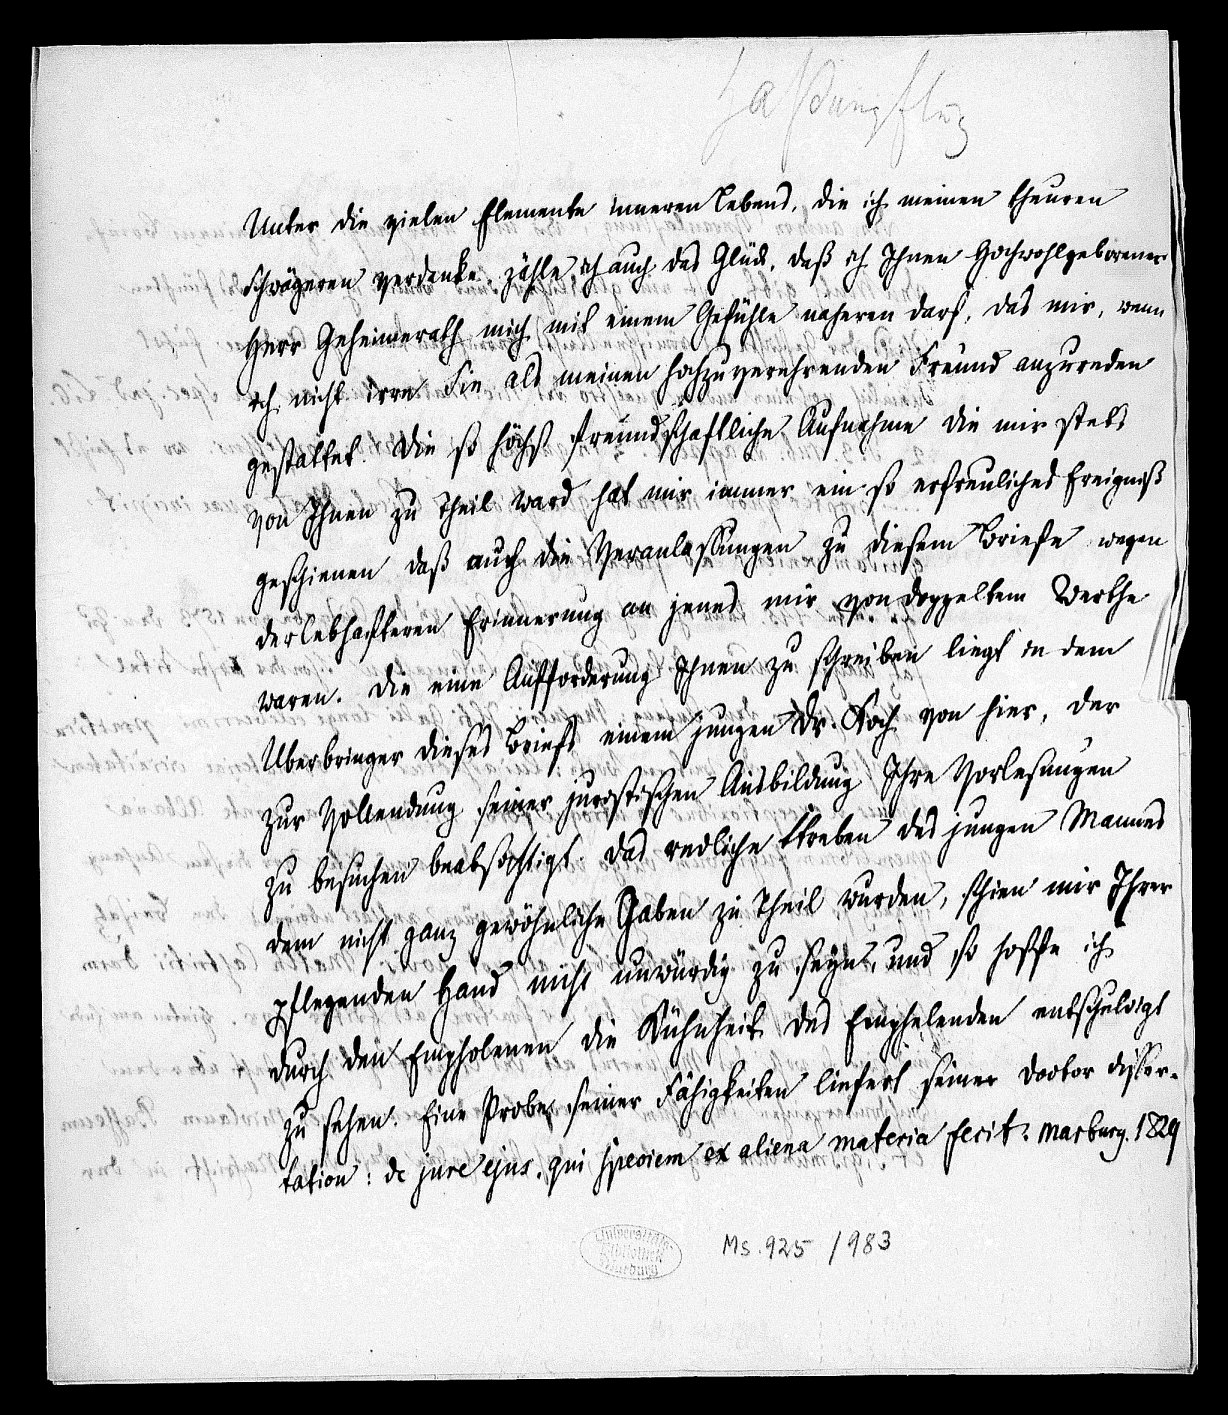 Haßenpflug
Unter die vielen Elemente inneren Lebens, die ich meinen theuren
Schwägeren verdanke, zähle ich auch das Glück, daß ich Ihnen Hochwohlgeborener
Herr Geheimerath mich mit einem Gefühle naheren darf, das mir, wenn
ich nicht irre Sie als meinen hochzuverehrenden Freund anzureden
gestattet. Die so höchst freundschaftliche Aufnahme die mir stets
von Ihnen zu Theil ward hat mir immer ein so erfreuliches Ereigniß
geschienen daß auch die Veranlassungen zu diesem Briefe wegen
der lebhafteren Erinnerung an jenes mir von doppeltem Werthe
waren. Die eine Aufforderung Ihnen zu schreiben liegt in dem
Uberbringer dieses Briefs einem jungen Dr. Koch von hier, der
zur Vollendung seiner juristischen Ausbildung Ihre Vorlesungen
zu besuchen beabsichtigt. Das redliche Streben des jungen Mannes
dem nicht ganz gewöhnliche Gaben zu Theil wurden, schien mir Ihrer
pflegenden Hand nicht unwürdig zu seyn, und so hoffe ich
durch den Empfolenen die Kühnheit des Empfelenden entschuldigt
zu sehen. Eine Probe seiner Fähigkeiten liefert seiner Doctor disser-
tation: de jure ejus, qui speciem ex aliena materia fecit. Marburg. 1829
Universitäts
Bibliothek
Marburg
Ms. 925 / 983